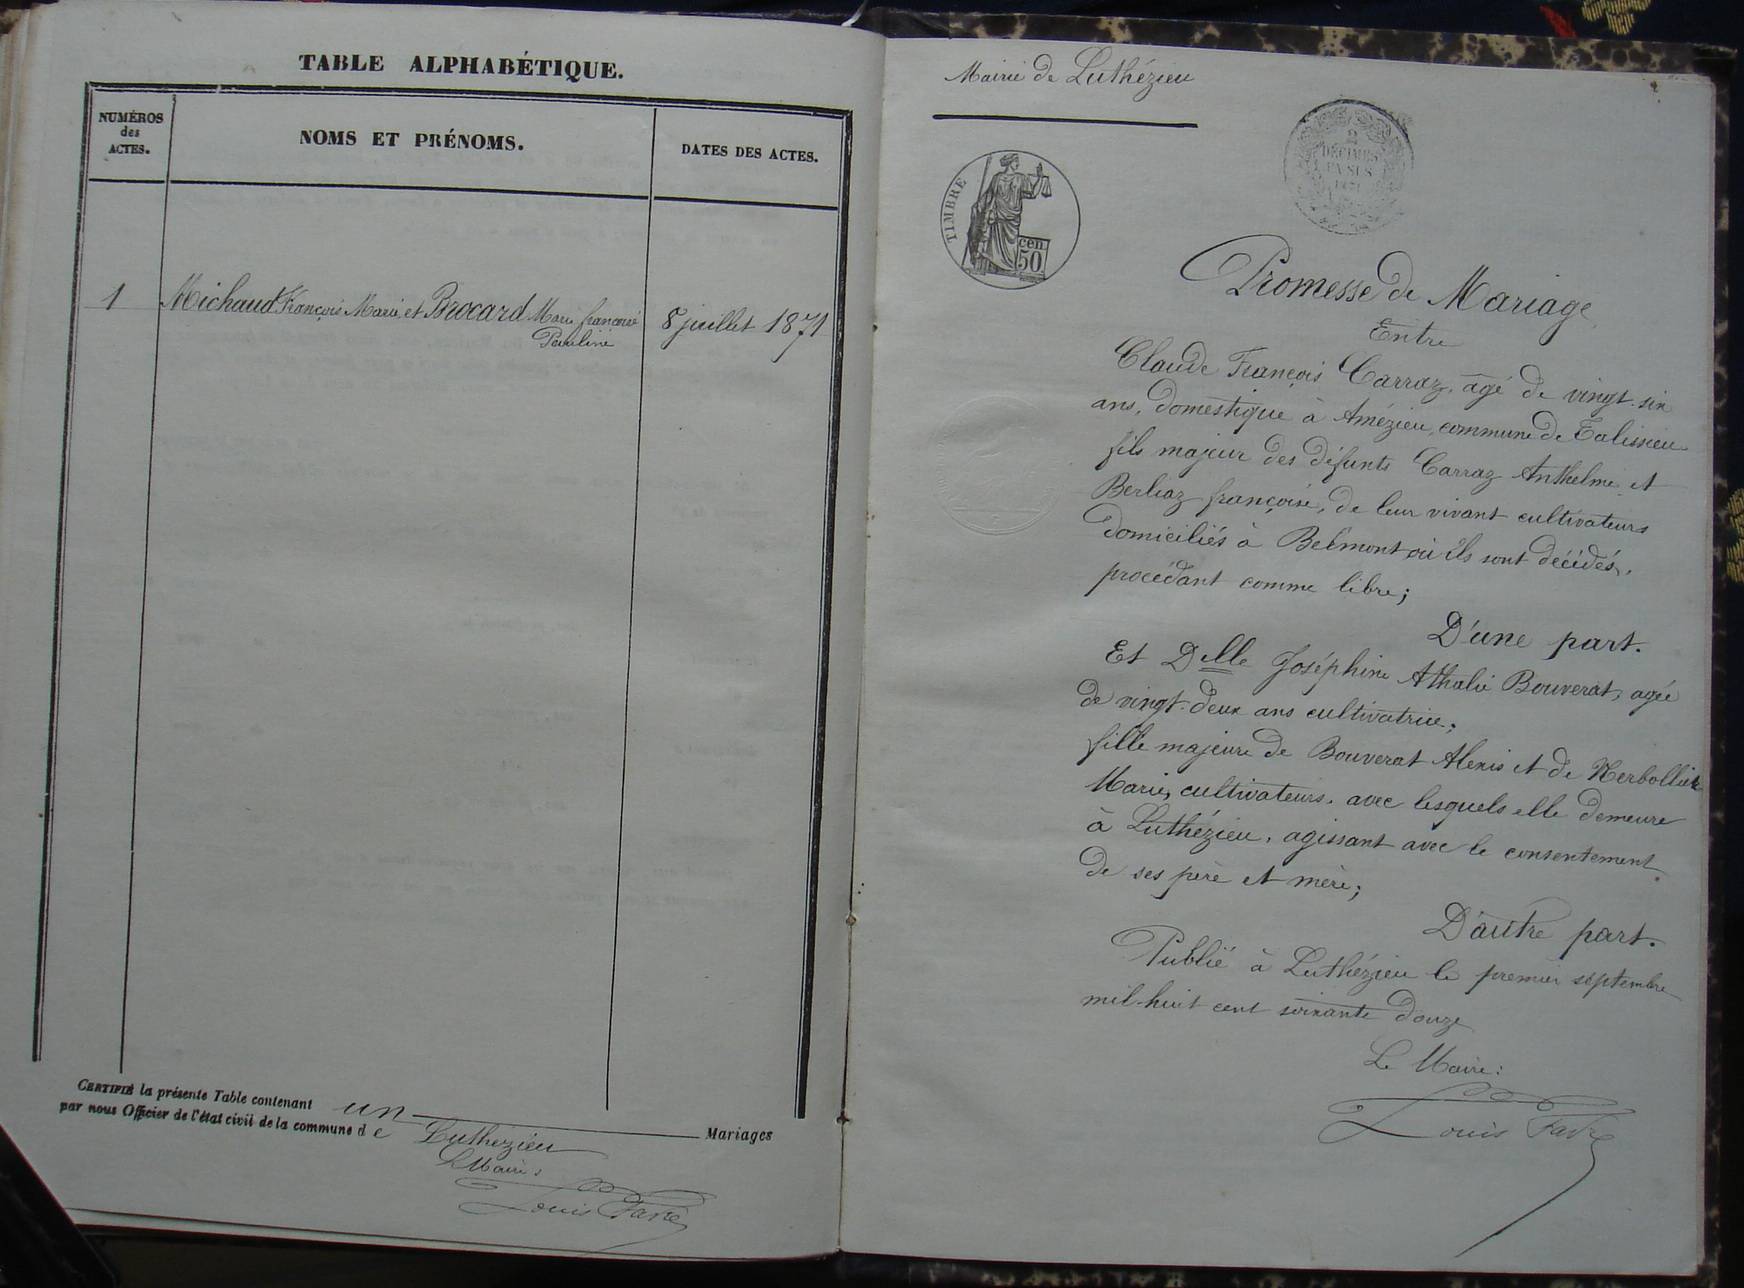 TABLE ALPHABÉTIQUE.
NUMÉROS
des
ACTES.
NOMS ET PRÉNOMS.
DATES DES ACTES.
1
Michaud François Marie et Brocard Marie françoise
Pauline
8 juillet 1871
CERTIFIÉ la présente Table contenant un Mariages
par nous Officier de l'état civil de la commune de Luthézieu
Le Maire:
Louis Favre
Mairie de Luthézieu
TIMBRE
cen.
50
2
DÉCIMES
EN SUS
1871
Promesse de Mariage
Entre
Claude François Carraz, âgé de vingt-six
ans, domestique à Amézieu, commune de Talissieu
fils majeur des défunts Carraz Anthelme et
Berlioz françoise, de leur vivant cultivateurs
domiciliés à Belmont où ils sont décédés,
procédant comme libre;
D'une part.
Et Delle Joséphine Athalie Bouverat, agée
de vingt-deux ans cultivatrice;
fille majeure de Bouverat Alexis et de Nerbollier
Marie, cultivateurs, avec lesquels elle demeure
à Luthézieu, agissant avec le consentement
de ses père et mère;
D'autre part.
Publié à Luthézieu le premier septembre
mil-huit cent soixante douze
Le Maire:
Louis Favre